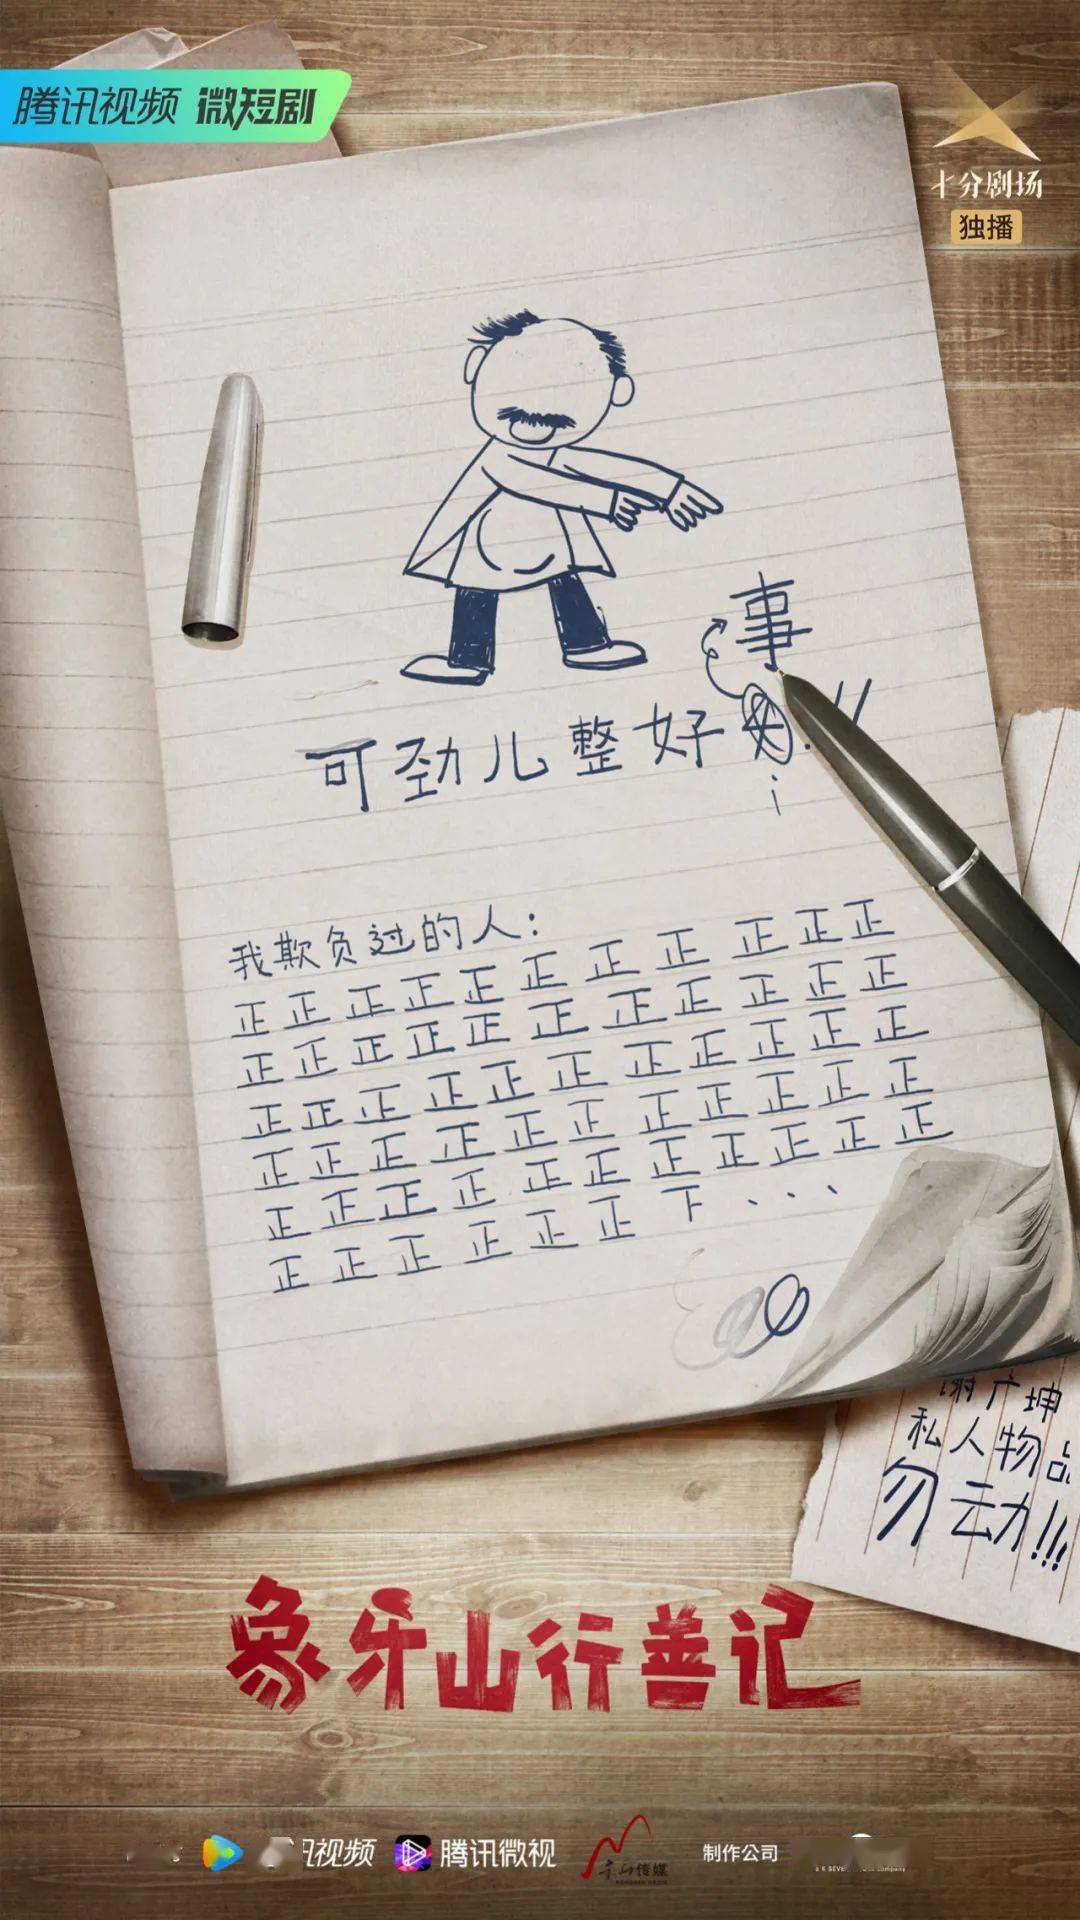 腾讯视频 微短剧
十分剧场
独播
事
可劲儿整好
我欺负过的人:
正正正正正正正正正正正
正正正正正正正正正正正
正正正正正正正正正正正
正正正正正正正正正正正
正正正正正正正正正正正
正正正正正正下...
谢广坤
私人物品
勿动!!!
象牙山行善记
讯视频 腾讯微视 本山传媒 制作公司